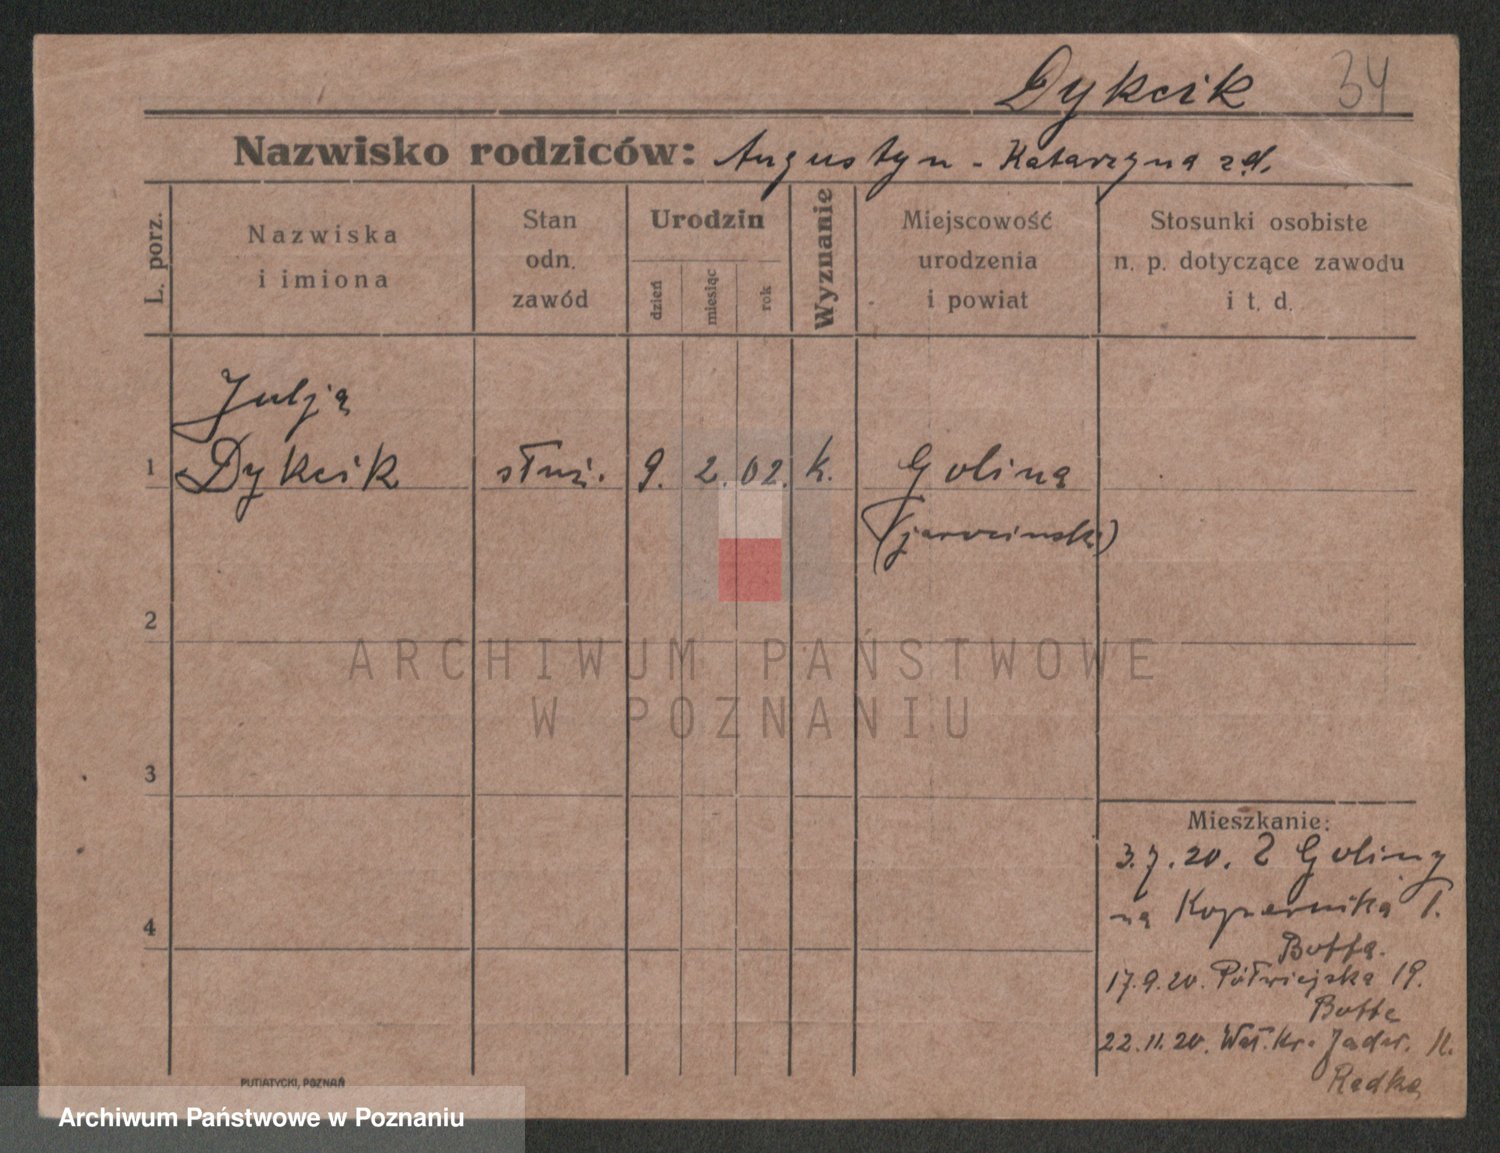 Dykcik 34
Nazwisko rodziców: Augustyn - Katarzyna z d.
L. porz.
Nazwiska
i imiona
Stan
odn.
zawód
Urodzin
dzień
miesiąc
rok
Wyznanie
Miejscowość
urodzenia
i powiat
Stosunki osobiste
n. p. dotyczące zawodu
i t. d.
Julja
1 Dykcik służ. 9. 2. 02. k. Golina
(jarociński)
2
ARCHIWUM PAŃSTWOWE
W POZNANIU
3
Mieszkanie:
3.7.20. Z Goliny
na Kopernika
4
17.9.20. Półwiejska 19.
22.11.20. Wał. Kr. Jadw. 11.
Radka
PUTIATYCKI, POZNAŃ
Archiwum Państwowe w Poznaniu